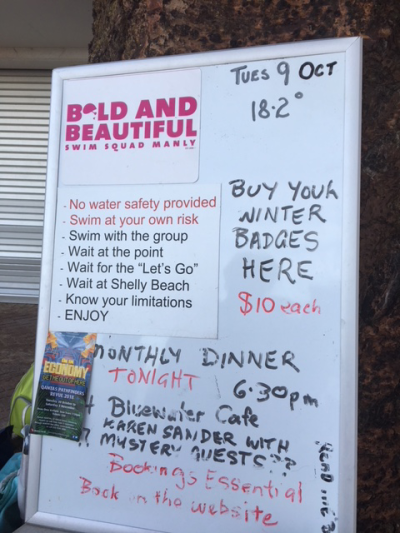 TUES 9 OCT
18.2°
BOLD AND
BEAUTIFUL
SWIM SQUAD MANLY
- No water safety provided
- Swim at your own risk
- Swim with the group
- Wait at the point
- Wait for the "Let's Go"
- Wait at Shelly Beach
- Know your limitations
- ENJOY
BUY YOUR
WINTER
BADGES
HERE
$10 each
ECONOMY
MONTHLY DINNER
TONIGHT 6:30pm
Bluewater Cafe
KAREN SANDER WITH
MYSTERY GUESTS??
Bookings Essential
Book on the website